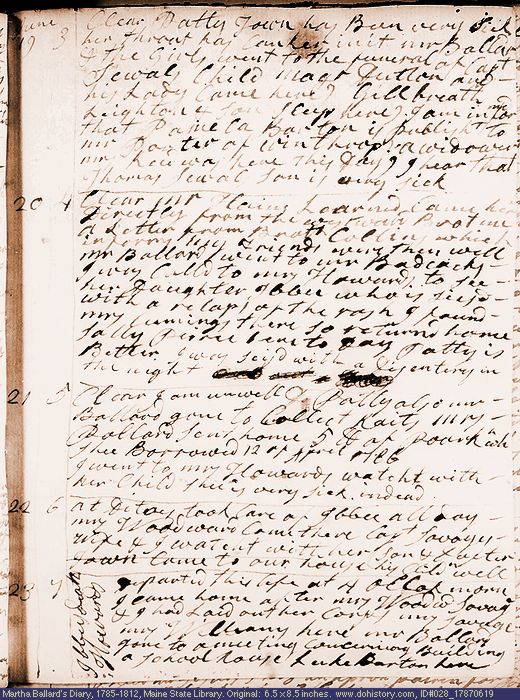 June
19 3 Clear Patty Town has Been very Sick
her throat has Canker in it mr Ballard
& the Girls went to the funeral of Capt
Sewals Child Majr Dutton and
his Lady Came here, Gillbreath
& Son Sleep here, I am inform
that Pamela Barton is Publisht to
mr Porter of winthrop, a widower
mr was here this Day, I hear that
Thomas Sewal Son is very Sick
20 4 Clear mr Came here
Directly from the Brot me
a Letter from Brot Collins which
informs my friends were then well
mr Ballard went to mr Badcocks
I was Calld to mrs Howards to see
her Daughter Isbee who is seisd
with a relaps of the rash I found
mrs Cumings there so returnd home
Sally Peirce went to Day Patty is
Better, I was seisd with a Disentery in
the night
21 5 Clear I am unwell & Polly also mr
Ballard gone to Collect mrs
Pollard Sent home 5 lb of poark which
shee Borrowed 12 of April 1786
I went to mrs Howards watcht with
her Child Shee is very Sick indeed
22 6 at Ditoes took Care of Isbee all Day
mrs Woodward Came there Capt Savages
wife & I watcht with her Son & Laster
Town Came to our house
23 7 Isbee Death Howards
Departd this life at 4 O Clok morn
I Came home after mrs Woodwd Savage
& I had Laid out her Corps mrs Savage
mrs Williams here mr Ballard
gone to a meeting Concerning Building
a School house Luke Barton here
Martha Ballard's Diary, 1785-1812, Maine State Library. Original: 6.5 x 8.5 inches. www.dohistory.com, ID#028_17870619